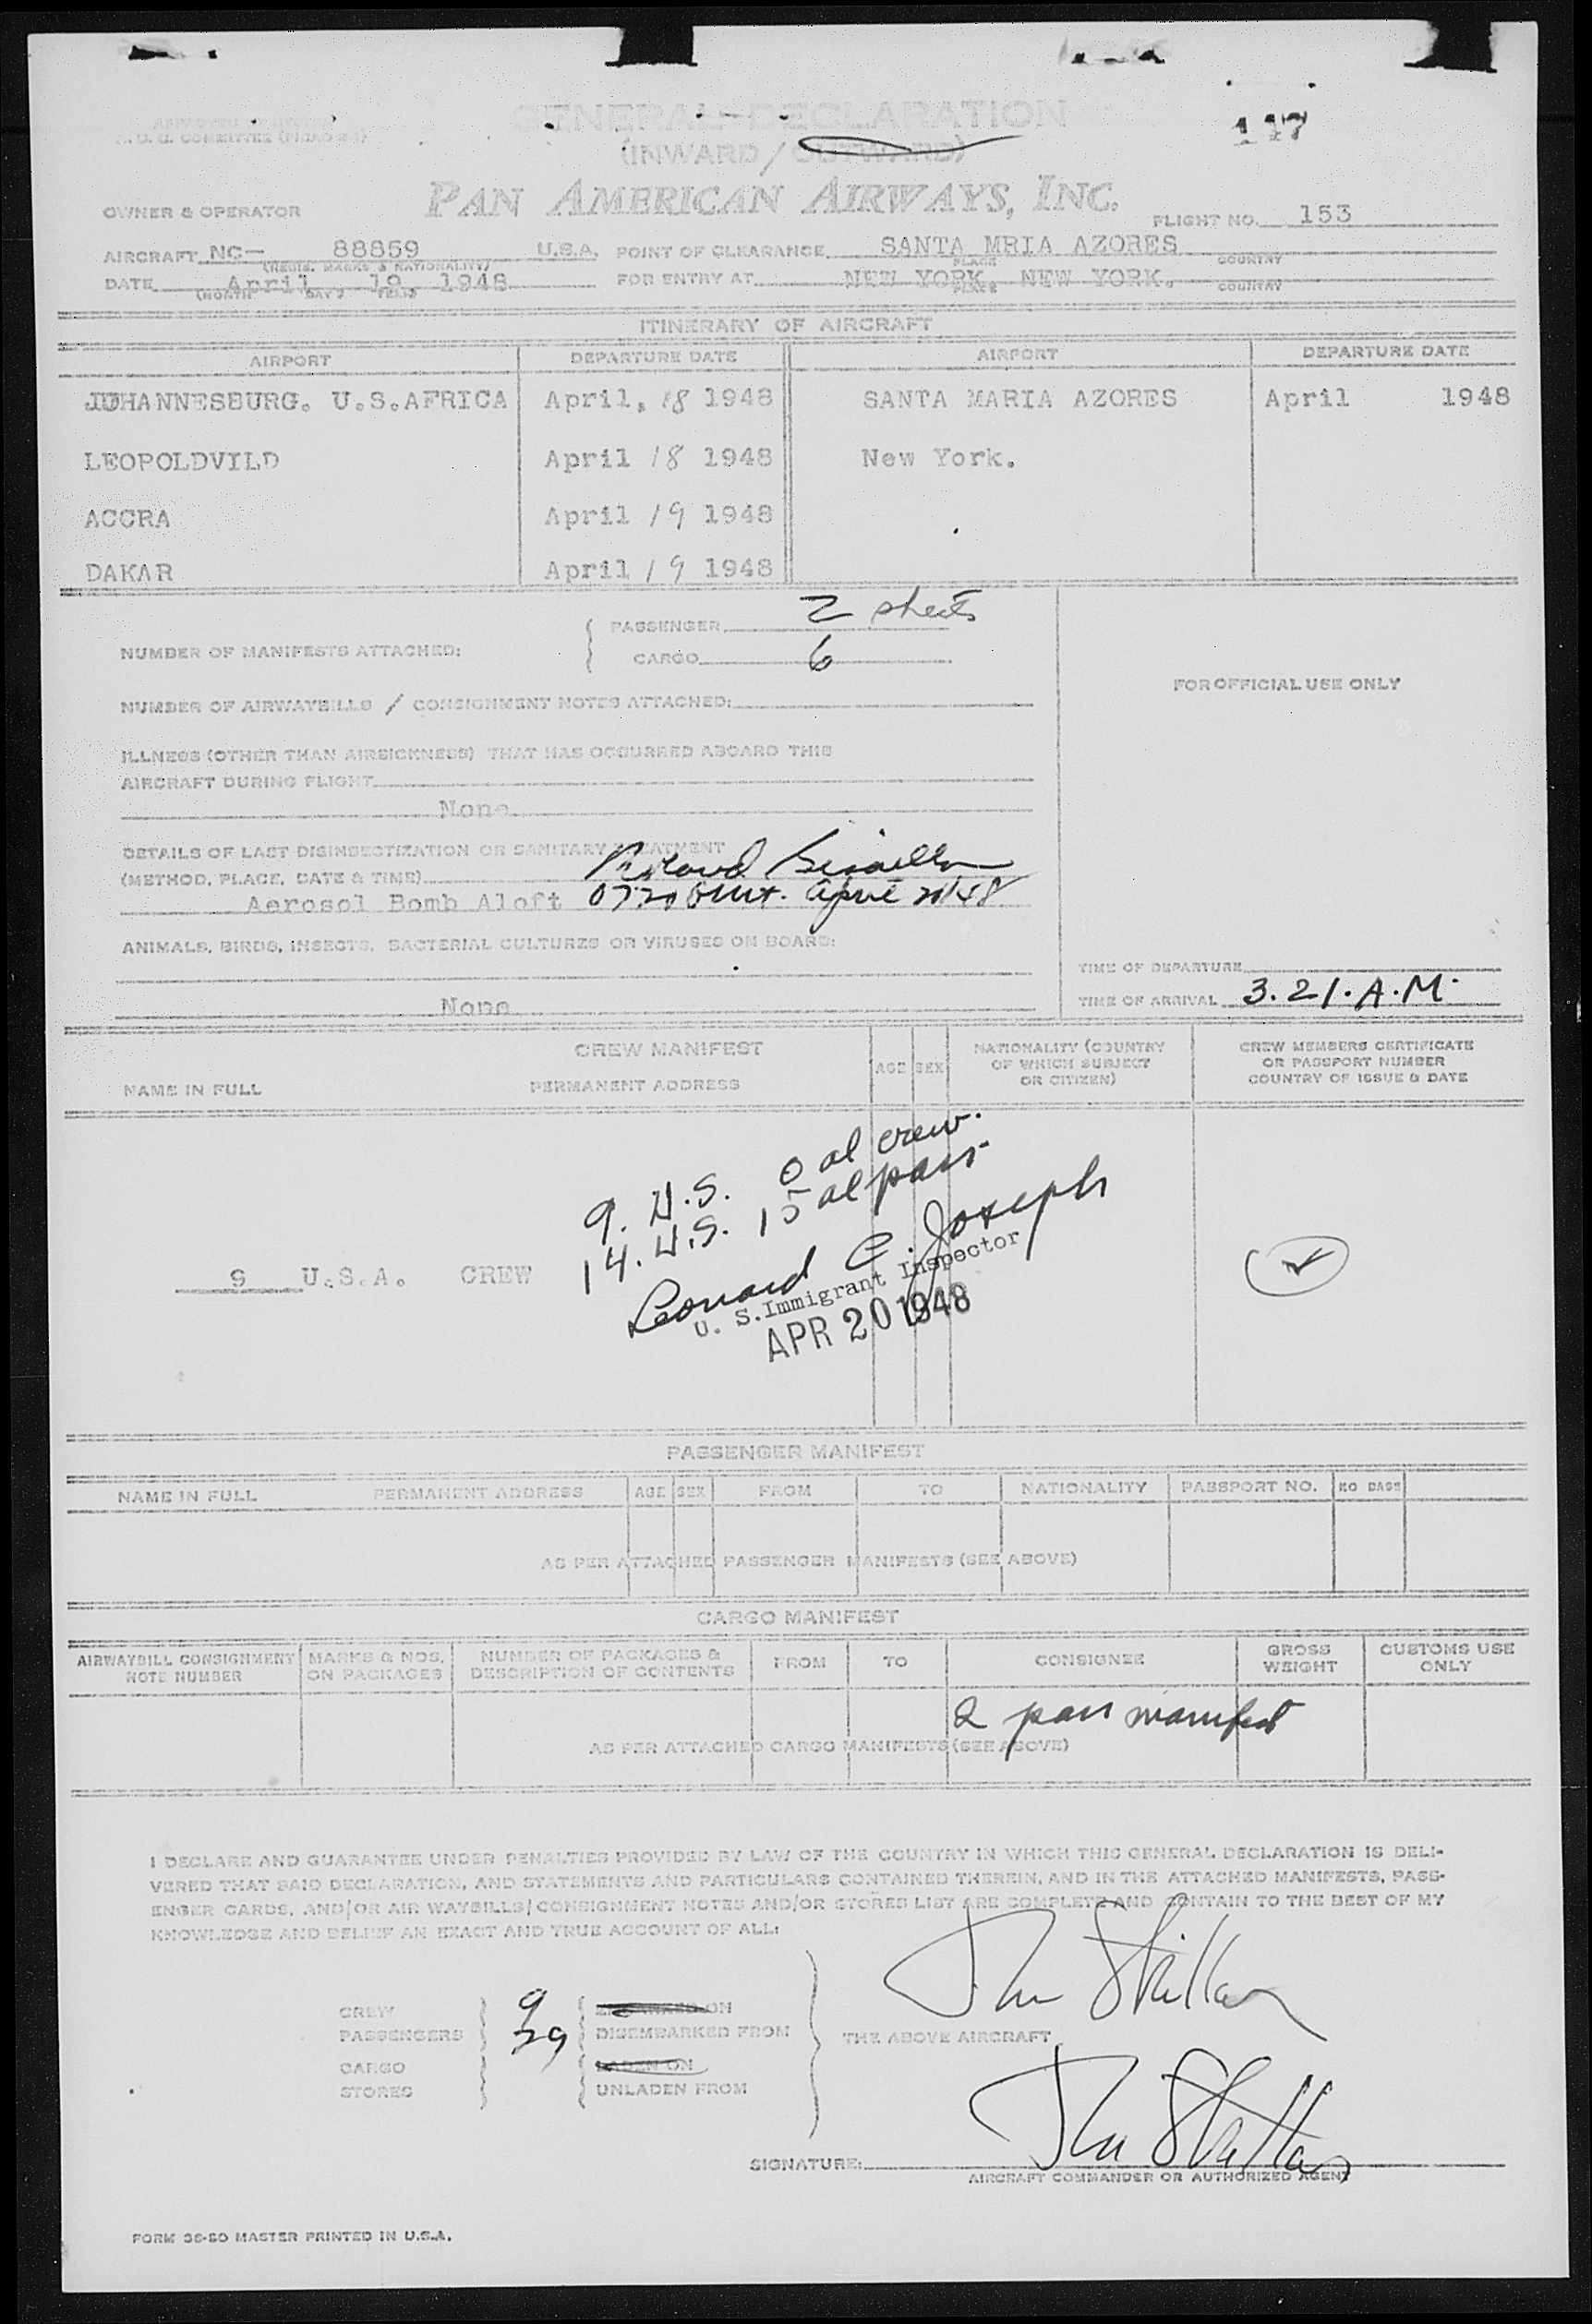 GENERAL DECLARATION
(INWARD / OUTWARD)
117
PAN AMERICAN AIRWAYS, INC.
OWNER & OPERATOR
FLIGHT NO. 153
AIRCRAFT NC- 88859 U.S.A. POINT OF CLEARANCE SANTA MRIA AZORES
(REGIS. MARKS & NATIONALITY) PLACE COUNTRY
DATE April 19, 1948 FOR ENTRY AT NEW YORK, NEW YORK.
(MONTH DAY YEAR) PLACE COUNTRY
ITINERARY OF AIRCRAFT
AIRPORT DEPARTURE DATE AIRPORT DEPARTURE DATE
JOHANNESBURG. U.S.AFRICA April, 18 1948 SANTA MARIA AZORES April 1948
LEOPOLDVILD April 18 1948 New York.
ACCRA April 19 1948
DAKAR April 19 1948
NUMBER OF MANIFESTS ATTACHED:
PASSENGER 2 sheets
CARGO 6
FOR OFFICIAL USE ONLY
NUMBER OF AIRWAYBILLS / CONSIGNMENT NOTES ATTACHED:
ILLNESS (OTHER THAN AIRSICKNESS) THAT HAS OCCURRED ABOARD THIS
AIRCRAFT DURING FLIGHT
None
DETAILS OF LAST DISINSECTIZATION OR SANITARY TREATMENT
(METHOD, PLACE, DATE & TIME)
Aerosol Bomb Aloft 0720 GMT. April 20/48
ANIMALS, BIRDS, INSECTS, BACTERIAL CULTURES OR VIRUSES ON BOARD:
None
TIME OF DEPARTURE
TIME OF ARRIVAL 3.21.A.M.
CREW MANIFEST
NAME IN FULL PERMANENT ADDRESS AGE SEX NATIONALITY (COUNTRY OF WHICH SUBJECT OR CITIZEN) CREW MEMBERS CERTIFICATE OR PASSPORT NUMBER COUNTRY OF ISSUE & DATE
9. U.S. 0 al crew.
14. U.S. 15 al pass
9 U.S.A. CREW
Leonard C. Joseph
U. S. Immigrant Inspector
APR 20 1948
PASSENGER MANIFEST
NAME IN FULL PERMANENT ADDRESS AGE SEX FROM TO NATIONALITY PASSPORT NO. NO BAGS
AS PER ATTACHED PASSENGER MANIFESTS (SEE ABOVE)
CARGO MANIFEST
AIRWAYBILL CONSIGNMENT NOTE NUMBER MARKS & NOS. ON PACKAGES NUMBER OF PACKAGES & DESCRIPTION OF CONTENTS FROM TO CONSIGNEE GROSS WEIGHT CUSTOMS USE ONLY
2 pass manifest
AS PER ATTACHED CARGO MANIFESTS (SEE ABOVE)
I DECLARE AND GUARANTEE UNDER PENALTIES PROVIDED BY LAW OF THE COUNTRY IN WHICH THIS GENERAL DECLARATION IS DELI-
VERED THAT SAID DECLARATION, AND STATEMENTS AND PARTICULARS CONTAINED THEREIN, AND IN THE ATTACHED MANIFESTS, PASS-
ENGER CARDS, AND/OR AIR WAYBILLS/CONSIGNMENT NOTES AND/OR STORES LIST ARE COMPLETE AND CONTAIN TO THE BEST OF MY
KNOWLEDGE AND BELIEF AN EXACT AND TRUE ACCOUNT OF ALL:
CREW 9 EMBARKED ON
PASSENGERS 29 DISEMBARKED FROM THE ABOVE AIRCRAFT
CARGO LADEN ON
STORES UNLADEN FROM
SIGNATURE:
AIRCRAFT COMMANDER OR AUTHORIZED AGENT
FORM 36-80 MASTER PRINTED IN U.S.A.